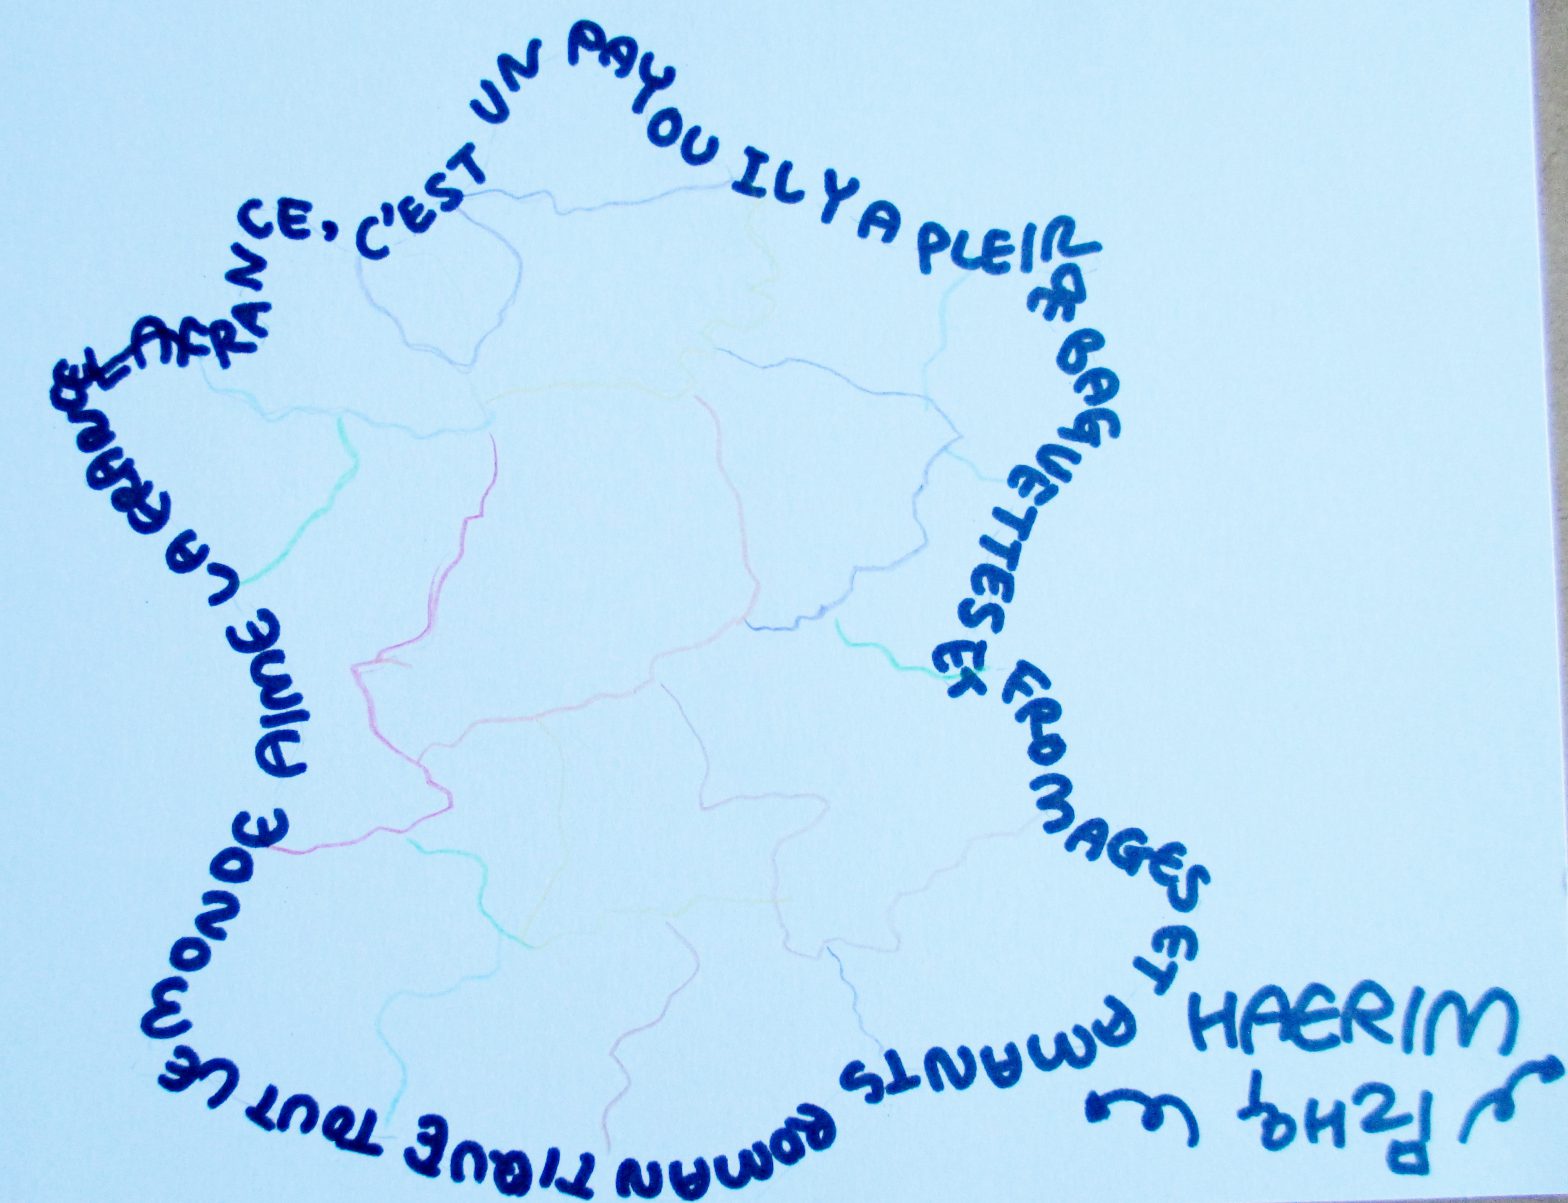 LA FRANCE, C'EST UN PAY OU IL Y A PLEIN DE BAGUETTES ET FROMAGES ET AMANTS ROMANTIQUE TOUT LE MONDE AIME LA FRANCE
HAERIM